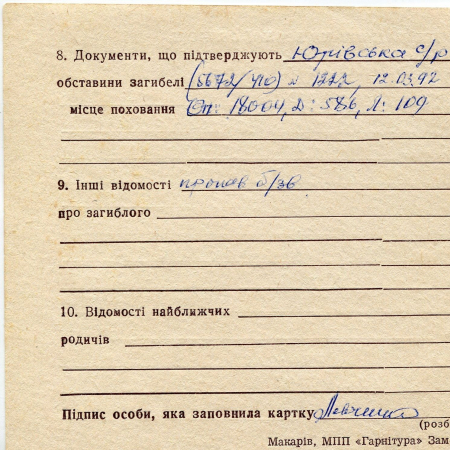 8. Документи, що підтверджують Юрівська с/р
обставини загибелі (5672/410) № 1222, 12.03.92
місце поховання Оп: 18004, Д: 586, Л: 109
9. Інші відомості пропав б/зв
про загиблого
10. Відомості найближчих
родичів
Підпис особи, яка заповнила картку
(розб
Макарів, МПП «Гарнітура» Зам